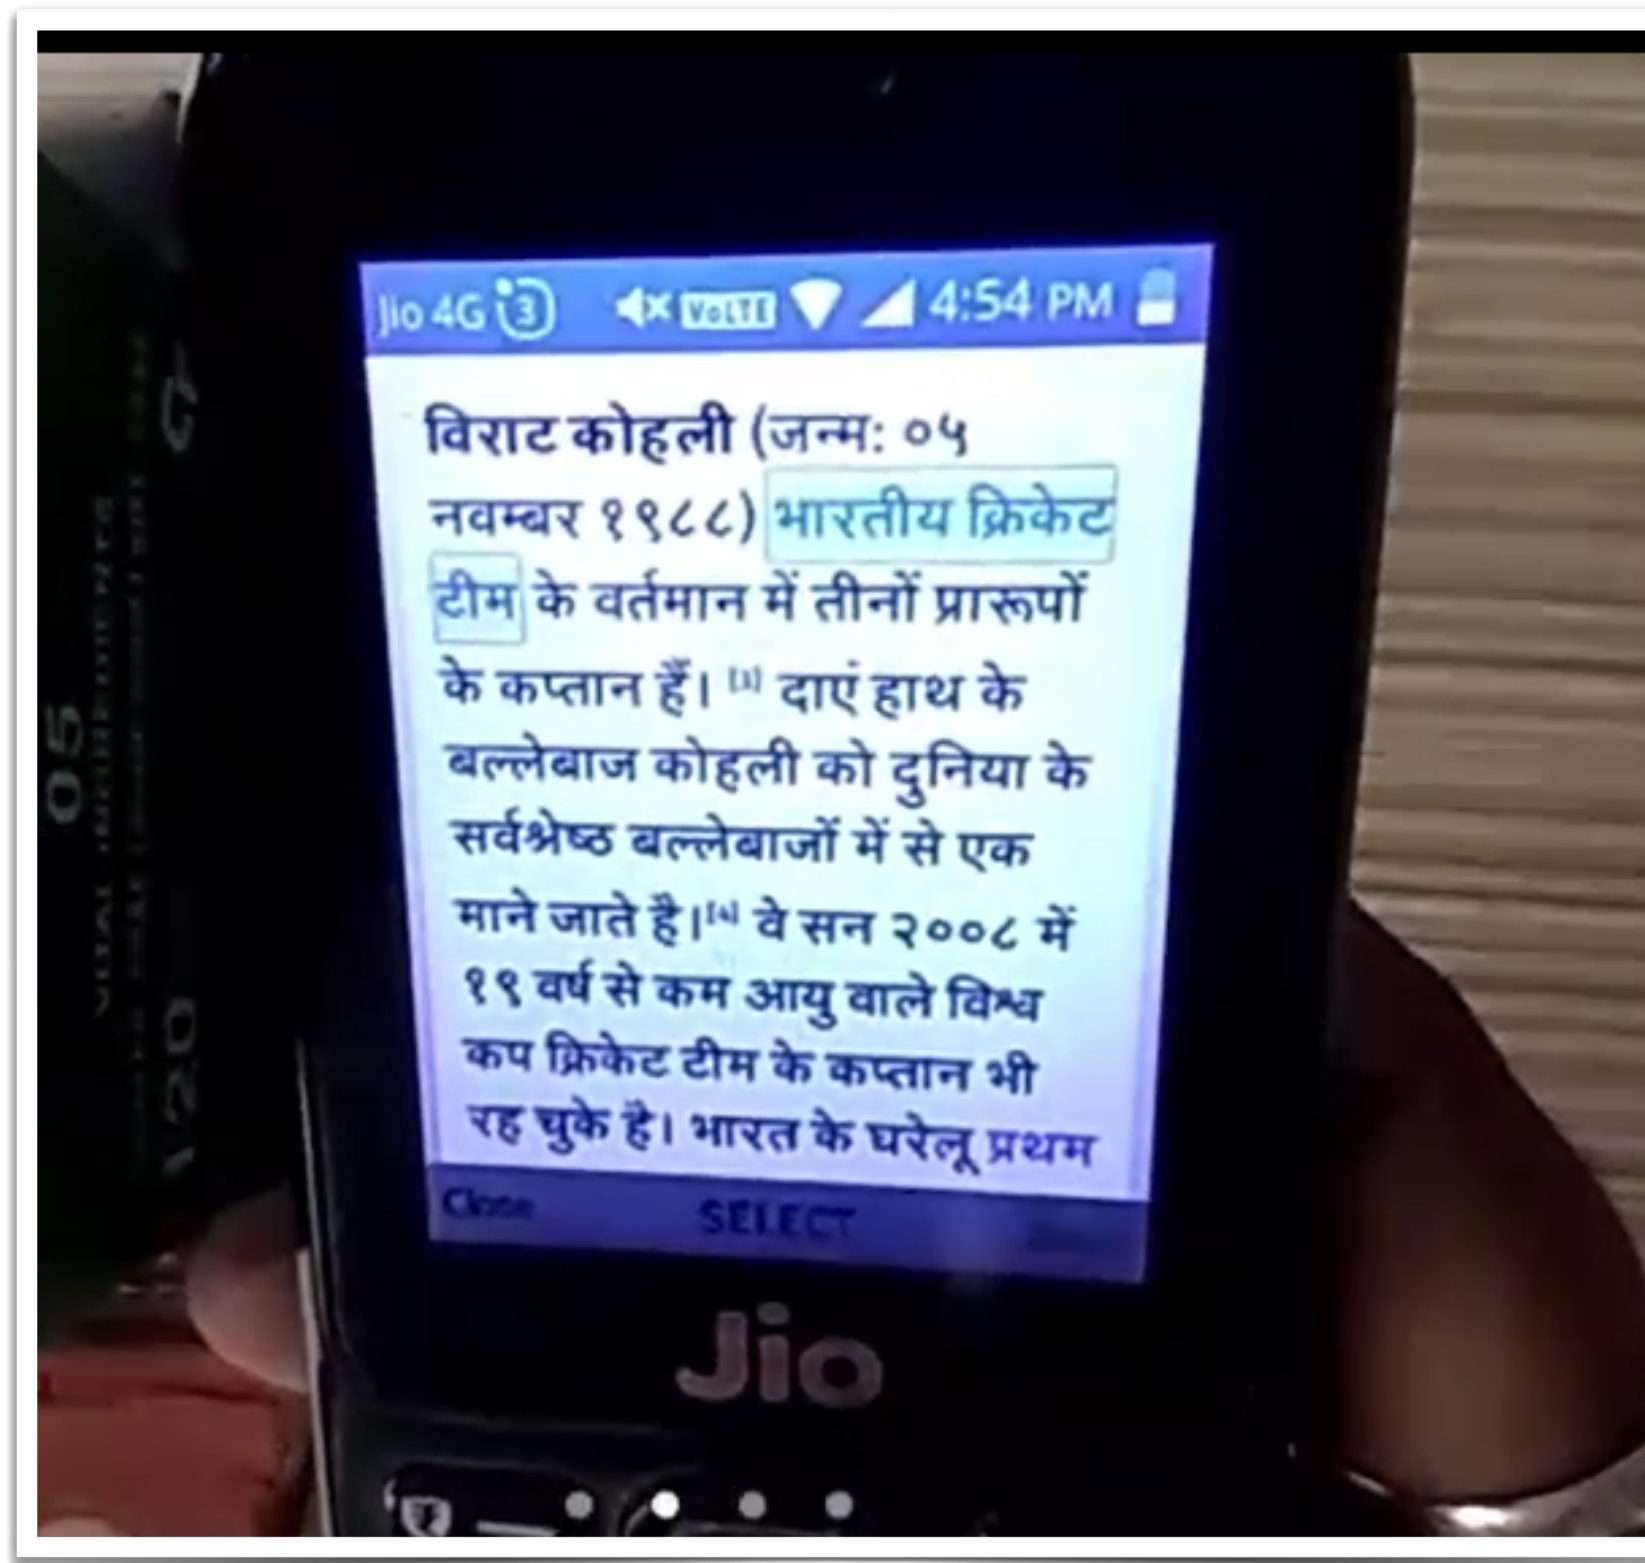 Jio 4G 3 VoLTE 4:54 PM
विराट कोहली (जन्म: ०५
नवम्बर १९८८) भारतीय क्रिकेट
टीम के वर्तमान में तीनों प्रारूपों
के कप्तान हैं। दाएं हाथ के
बल्लेबाज कोहली को दुनिया के
सर्वश्रेष्ठ बल्लेबाजों में से एक
माने जाते है। वे सन २००८ में
१९ वर्ष से कम आयु वाले विश्व
कप क्रिकेट टीम के कप्तान भी
रह चुके है। भारत के घरेलू प्रथम
Close SELECT
Jio
05
VITAL INGREDIENTS
120